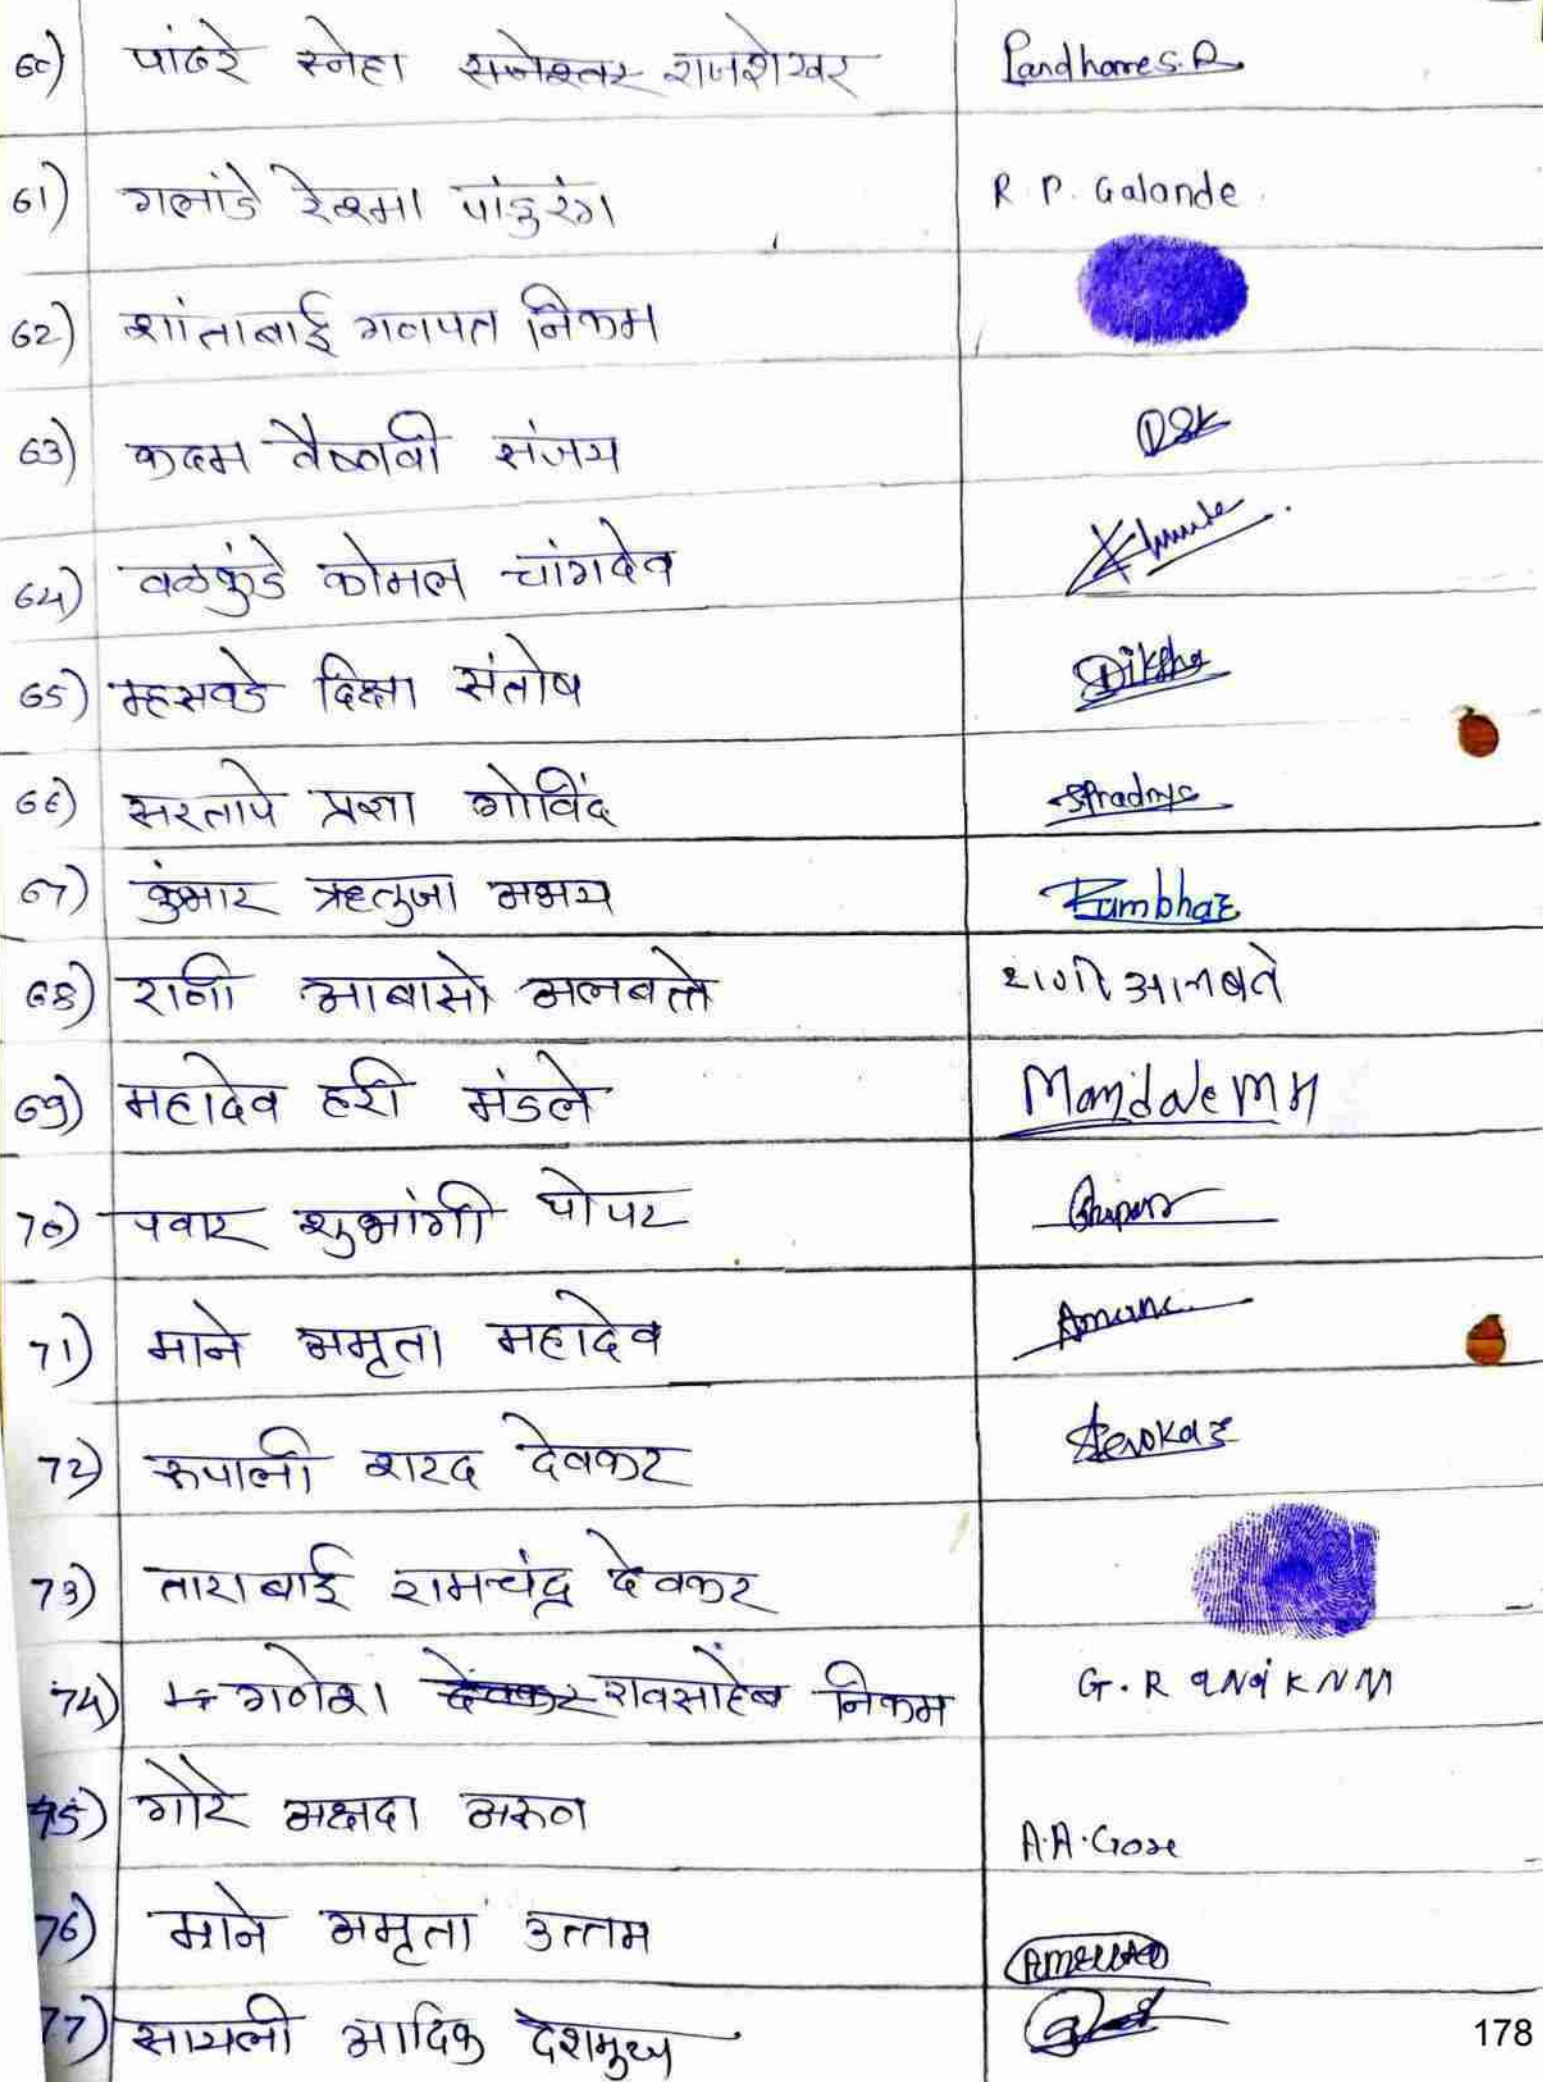 60) पांढरे स्नेहा राजेश्वर राजशेखर Pandhare S.R.
61) गलांडे रेश्मा पांडुरंग R. P. Galande
62) शांताबाई गणपत निकम
63) कदम वैष्णवी संजय DSK
64) वळकुंडे कोमल चांगदेव
65) म्हसवडे दिक्षा संतोष Diksha
66) सरतापे प्रज्ञा गोविंद Spradnya
67) कुंभार ऋतुजा अभय Kumbhar
68) राणी आबासो अलबत्ते राणी आलबते
69) महादेव हरी मंडले Mandale M H
70) पवार शुभांगी पोपट
71) माने अमृता महादेव Amane
72) रुपाली शरद देवकर Devokar
73) ताराबाई रामचंद्र देवकर
74) गणेश देवकर रावसाहेब निकम
75) गोरे अक्षदा अरुण A.A. Gore
76) माने अमृता उत्तम
77) सायली आदिक देशमुख
178